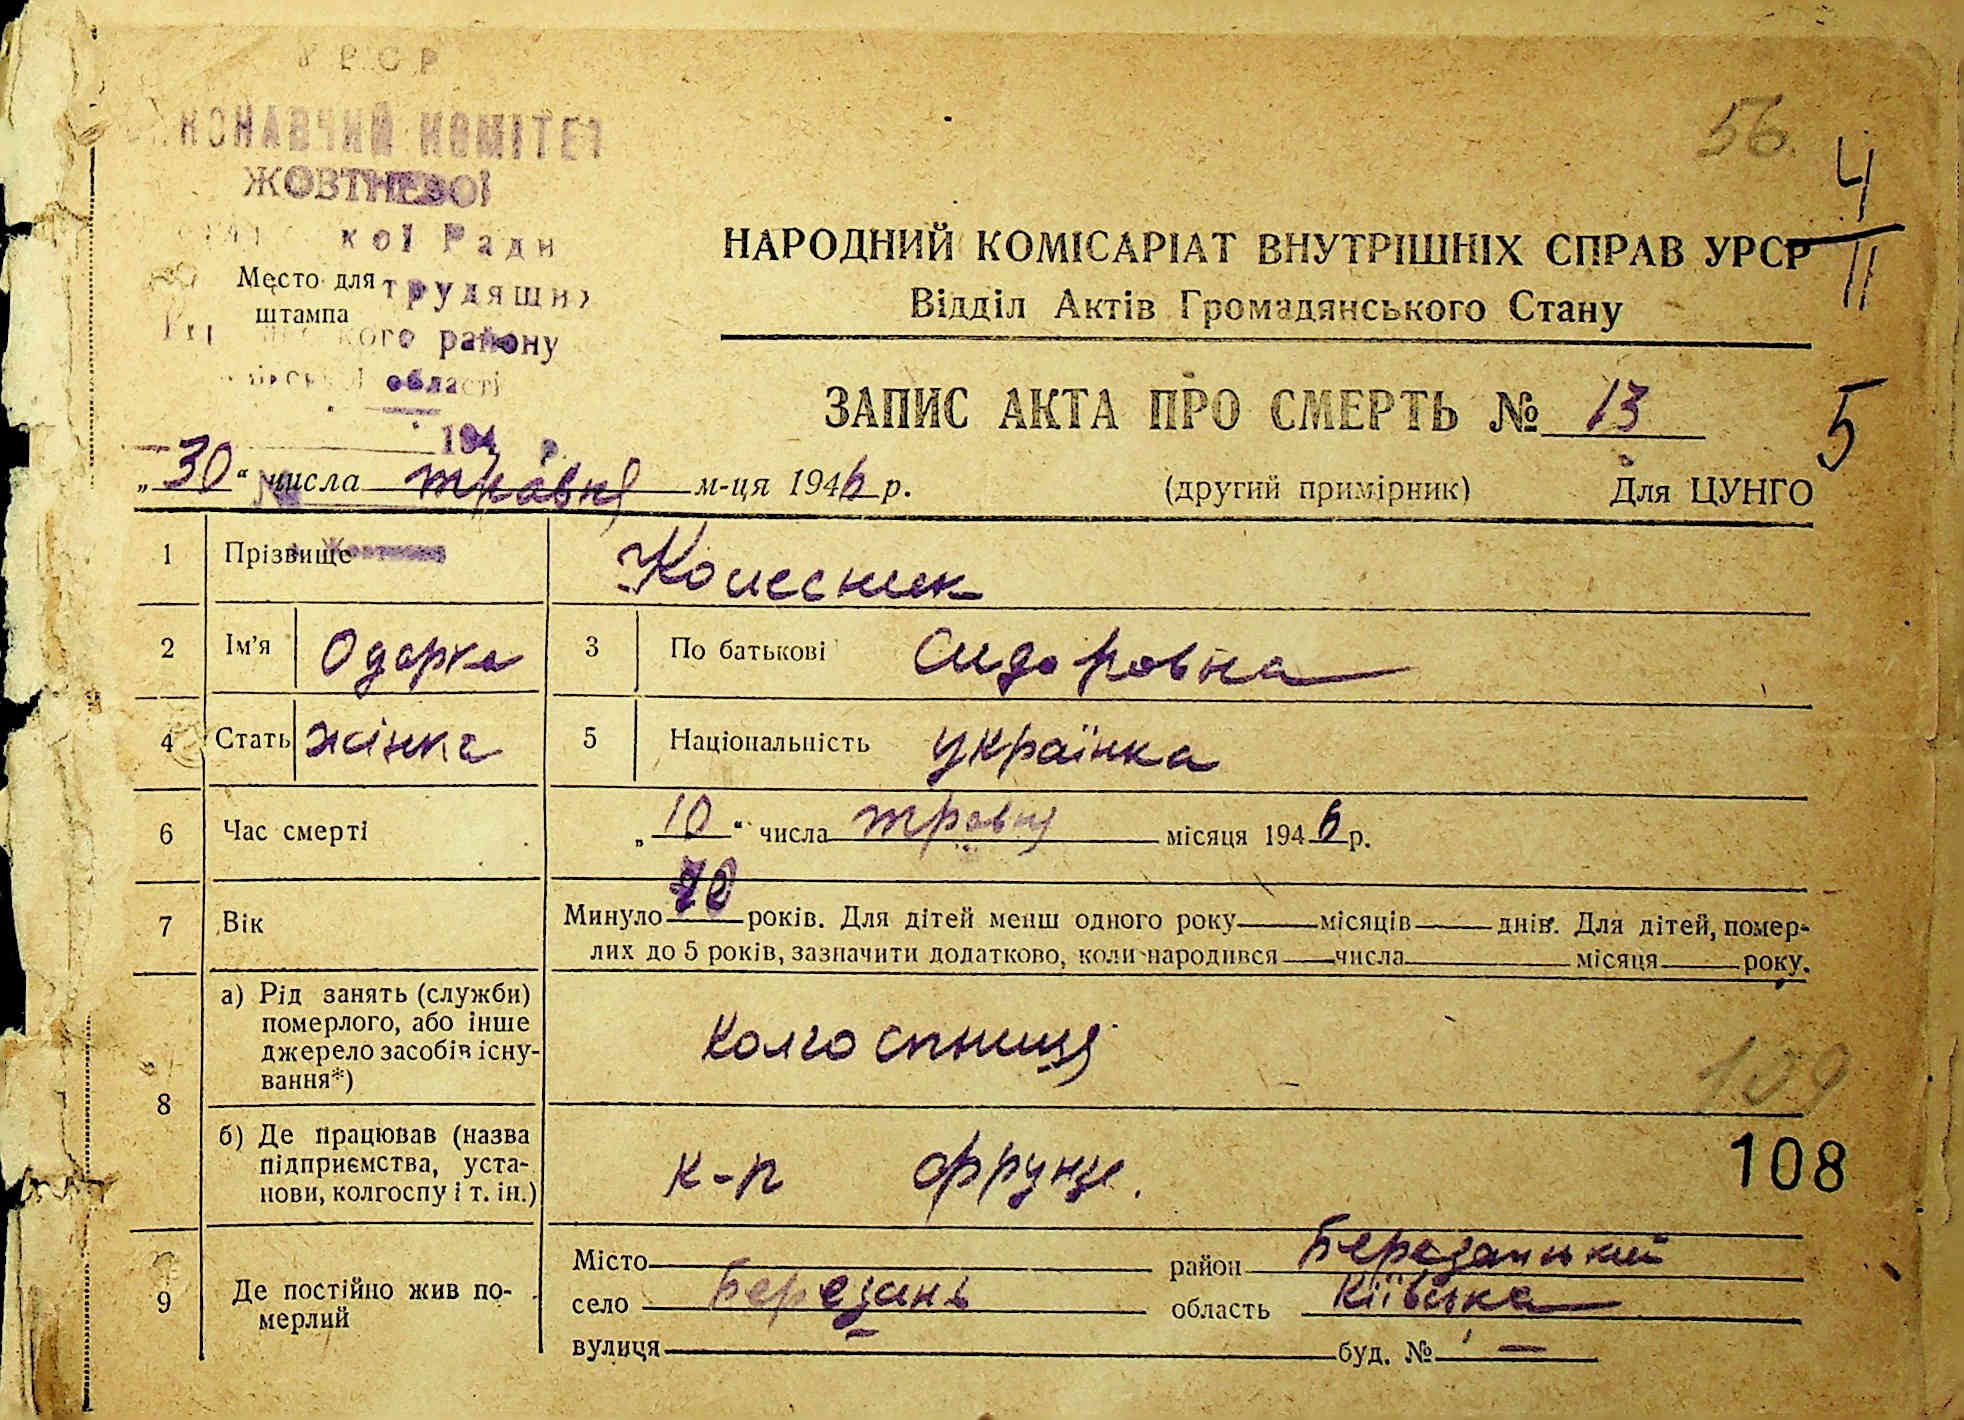 УРСР
56.
КОНАВЧИЙ КОМІТЕТ
ЖОВТНЕВОЇ
кої Ради
4
II
НАРОДНИЙ КОМІСАРІАТ ВНУТРІШНІХ СПРАВ УРСР
Место для трудящих
штампа
Відділ Актів Громадянського Стану
кого району
області
ЗАПИС АКТА ПРО СМЕРТЬ № 13
5
194 р.
№
„30“ числа травня м-ця 1946 р. (другий примірник) Для ЦУНГО
1 Прізвище Колесник
2 Ім'я Одарка 3 По батькові Сидоровна
4 Стать жінка 5 Національність українка
6 Час смерті „10“ числа травня місяця 1946 р.
7 Вік Минуло 70 років. Для дітей менш одного року місяців днів. Для дітей, помер-
лих до 5 років, зазначити додатково, коли народився числа місяця року.
8 а) Рід занять (служби)
померлого, або інше
джерело засобів існу-
вання*)
колгоспниця
109
б) Де працював (назва
підприємства, уста-
нови, колгоспу і т. ін.)
к-п Фрунце.
108
9 Де постійно жив по-
мерлий
Місто район Березанський
село Березань область Київська
вулиця буд. № —